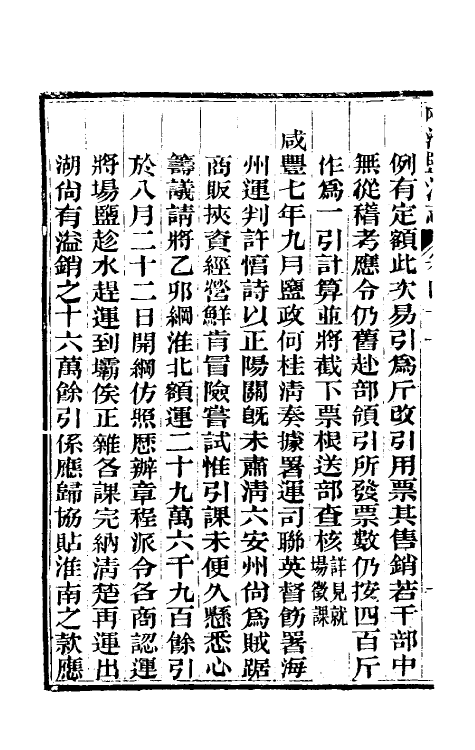 例有定額此次易引爲斤改引用票其售銷若干部中
無從稽考應令仍舊赴部領引所發票數仍按四百斤
作爲一引計算並將截下票根送部查核詳見就場徵課
咸豐七年九月鹽政何桂淸奏據署運司聯英督飭署海
州運判許惜詩以正陽關旣未肅淸六安州尙爲賊踞
商販挾資經營鮮肯冒險嘗試惟引課未便久懸悉心
籌議請將乙卯綱淮北額運二十九萬六千九百餘引
於八月二十二日開綱仿照歷辦章程派令各商認運
將場鹽趁水趕運到壩俟正雜各課完納淸楚再運出
湖尙有溢銷之十六萬餘引係應歸協貼淮南之款應